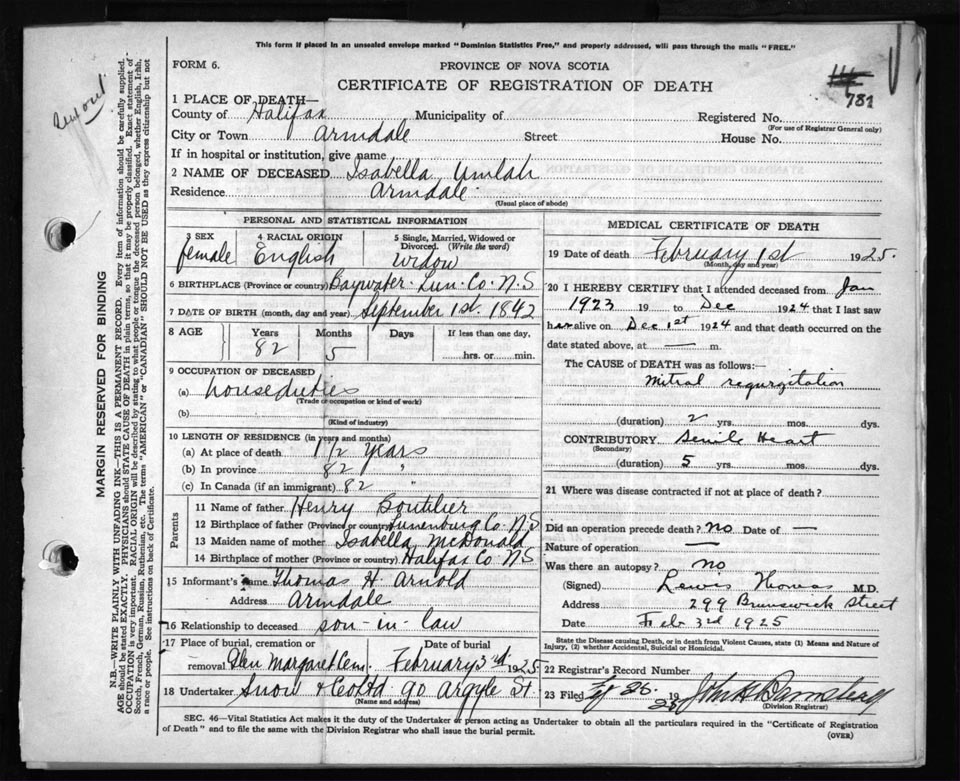 This form if placed in an unsealed envelope marked "Dominion Statistics Free," and properly addressed, will pass through the mails "FREE."
FORM 6.
PROVINCE OF NOVA SCOTIA
CERTIFICATE OF REGISTRATION OF DEATH
781
1 PLACE OF DEATH—
County of Halifax Municipality of Registered No.
(For use of Registrar General only)
City or Town Armdale Street House No.
If in hospital or institution, give name
2 NAME OF DECEASED Isabella Umlah
Residence Armdale
(Usual place of abode)
PERSONAL AND STATISTICAL INFORMATION
3 SEX 4 RACIAL ORIGIN 5 Single, Married, Widowed or
Divorced. (Write the word)
female English widow
6 BIRTHPLACE (Province or country) Baywater Lun. Co. N.S
7 DATE OF BIRTH (month, day and year) September 1st. 1842
8 AGE Years Months Days If less than one day,
82 5 hrs. or min.
9 OCCUPATION OF DECEASED
(a) houseduties
(Trade or occupation or kind of work)
(b)
(Kind of industry)
10 LENGTH OF RESIDENCE (in years and months)
(a) At place of death 1 1/2 years
(b) In province 82 "
(c) In Canada (if an immigrant) 82 "
Parents
11 Name of father Henry Boutilier
12 Birthplace of father (Province or country) Lunenburg Co. N.S
13 Maiden name of mother Isabella McDonald
14 Birthplace of mother (Province or country) Halifax Co N.S
15 Informant's name Thomas H. Arnold
Address Armdale
16 Relationship to deceased son-in-law
17 Place of burial, cremation or Date of burial
removal Glen Margaret Cem. February 3rd 1925
18 Undertaker Snow & Co Ltd 90 Argyle St.
(Name and address)
MEDICAL CERTIFICATE OF DEATH
19 Date of death February 1st 1925.
(Month, day and year)
20 I HEREBY CERTIFY that I attended deceased from Jan
1923 19 to Dec 1924 that I last saw
her alive on Dec 1st 1924 and that death occurred on the
date stated above, at — m.
The CAUSE OF DEATH was as follows:—
mitral regurgitation
(duration) 2 yrs. mos. dys.
CONTRIBUTORY Senile Heart
(Secondary)
(duration) 5 yrs. mos. dys.
21 Where was disease contracted if not at place of death?
Did an operation precede death? no Date of —
Nature of operation —
Was there an autopsy? no
(Signed) Lewis Thomas M.D.
Address 299 Brunswick Street
Date Feb 3rd 1925
State the Disease causing Death, or in death from Violent Causes, state (1) Means and Nature of
Injury, (2) whether Accidental, Suicidal or Homicidal.
22 Registrar's Record Number
23 Filed 26. 19 25 John H
(Division Registrar)
SEC. 46—Vital Statistics Act makes it the duty of the Undertaker or person acting as Undertaker to obtain all the particulars required in the "Certificate of Registration
of Death" and to file the same with the Division Registrar who shall issue the burial permit.
(OVER)
MARGIN RESERVED FOR BINDING
N.B.—WRITE PLAINLY WITH UNFADING INK—THIS IS A PERMANENT RECORD. Every item of information should be carefully supplied.
AGE should be stated EXACTLY. PHYSICIANS should STATE CAUSE OF DEATH in plain terms, so that it may be properly classified. Exact statement of
OCCUPATION is very important. RACIAL ORIGIN will be described by stating to what people or tongue the deceased person belonged, whether English, Irish,
Scotch, French, German, Russian, Ruthenian, etc. The terms "AMERICAN" or "CANADIAN" SHOULD NOT BE USED as they express citizenship but not
a race or people. See instructions on back of Certificate.